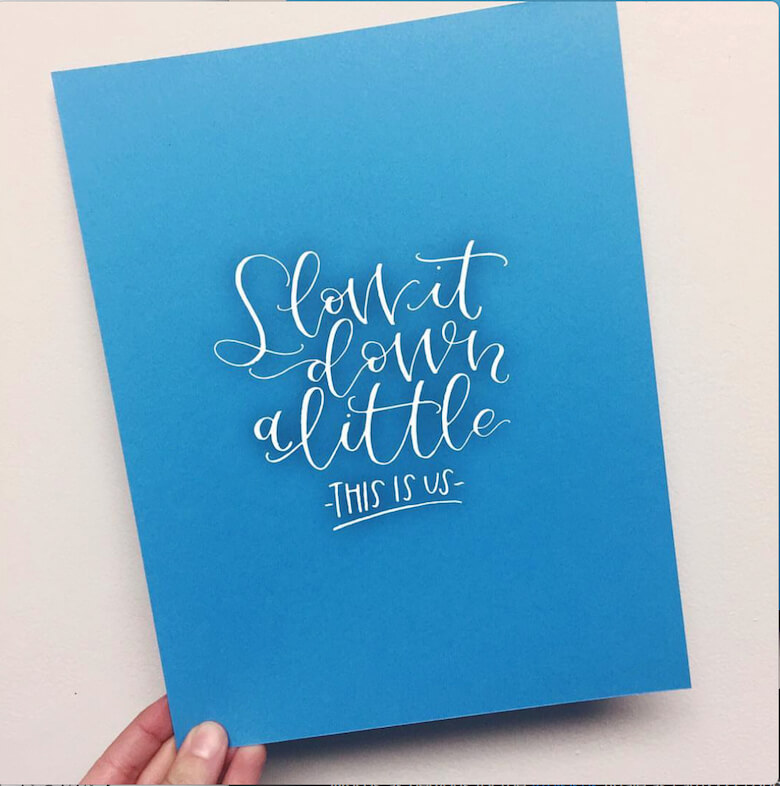 Slow it
down
a little
-THIS IS US-